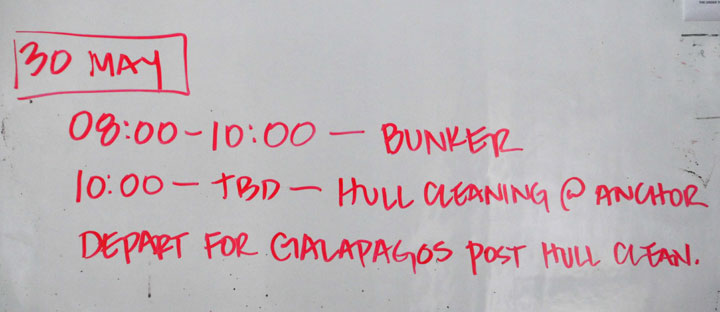 30 MAY
08:00-10:00 — BUNKER
10:00 — TBD — HULL CLEANING @ ANCHOR
DEPART FOR GALAPAGOS POST HULL CLEAN.